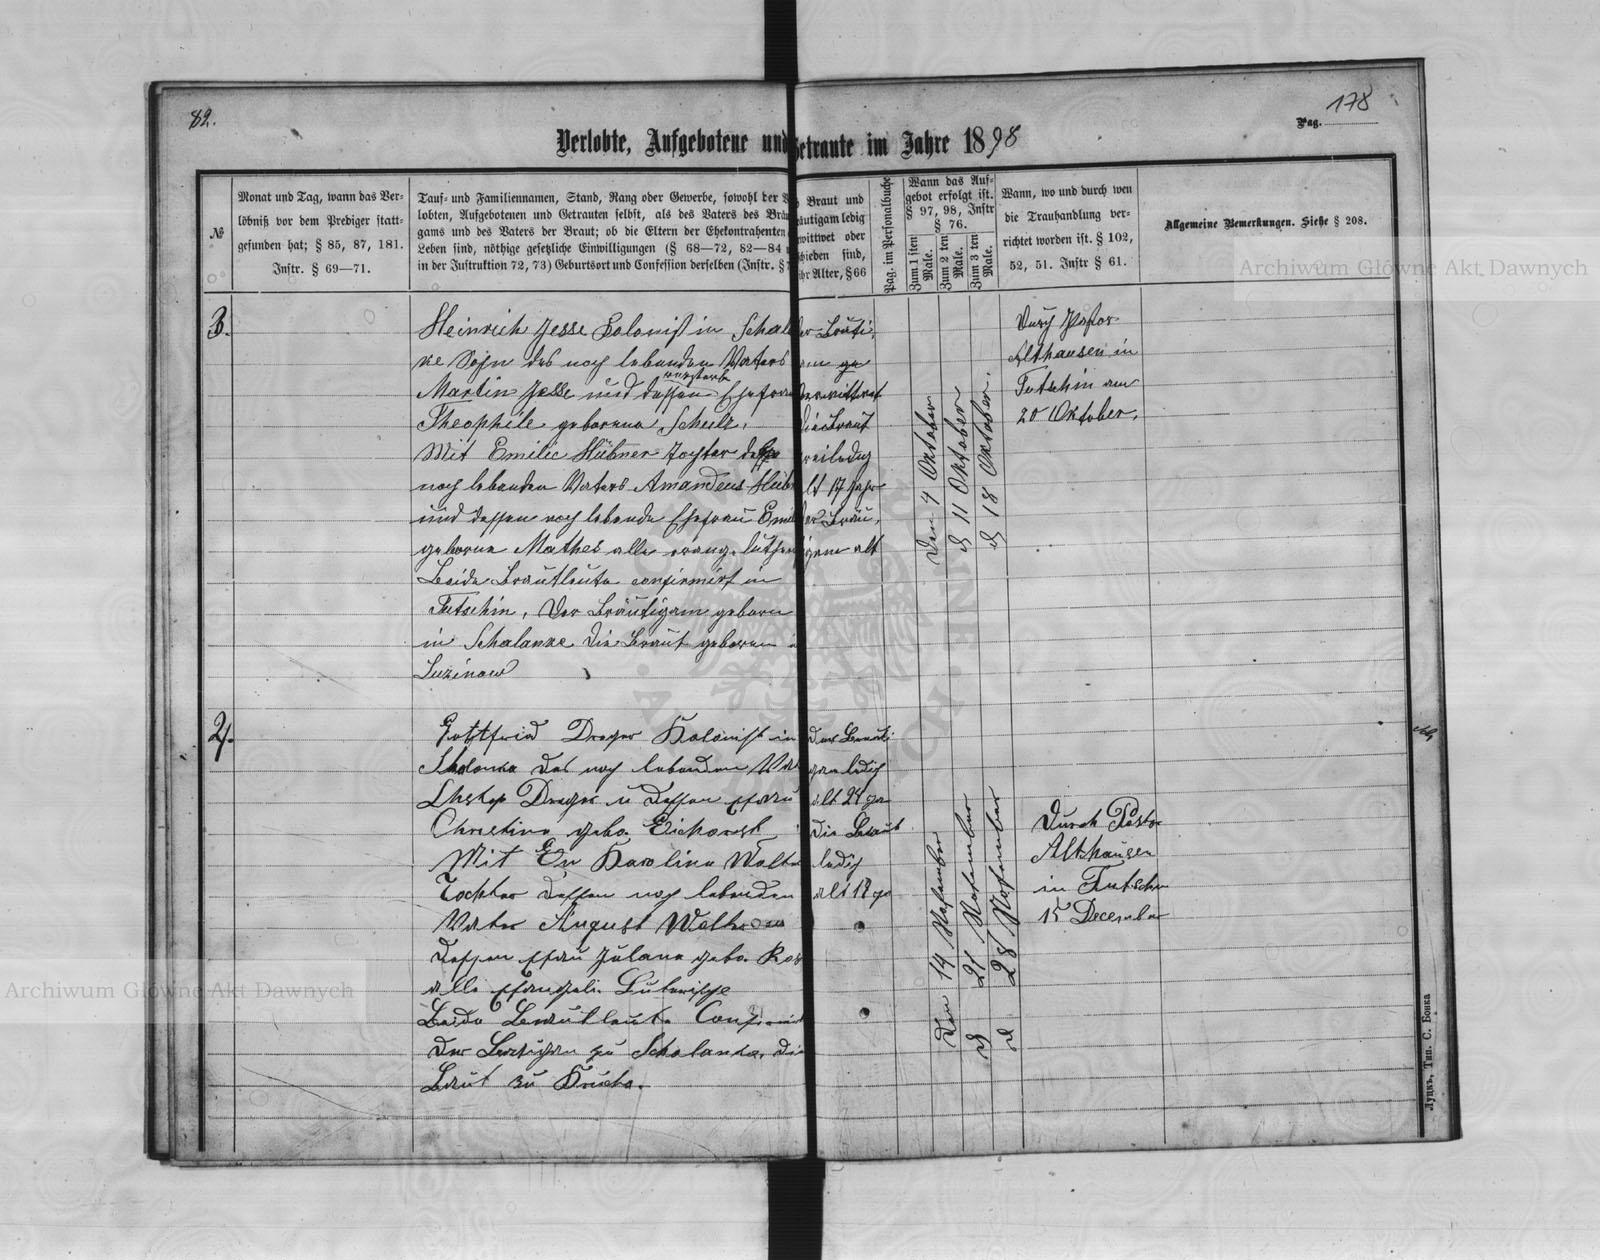 82.
178
Pag.
Verlobte, Aufgebotene und Getraute im Jahre 1898
№
Monat und Tag, wann das Ver-
löbniß vor dem Prediger statt-
gefunden hat; § 85, 87, 181.
Instr. § 69—71.
Tauf- und Familiennamen, Stand, Rang oder Gewerbe, sowohl der
lobten, Aufgebotenen und Getrauten selbst, als des Vaters des Bräu
gams und des Vaters der Braut; ob die Eltern der Ehekontrahenten
Leben sind, nöthige gesetzliche Einwilligungen (§ 68—72, 82—84
in der Instruktion 72, 73) Geburtsort und Confession derselben (Instr. §
Braut und
äutigam ledig
wittwet oder
hieden sind,
ihr Alter, § 66
Pag. im Personalbuche
Wann das Auf-
gebot erfolgt ist.
§ 97, 98, Instr
§ 76.
Zum 1 sten
Male.
Zum 2 ten
Male.
Zum 3 ten
Male.
Wann, wo und durch wen
die Trauhandlung ver-
richtet worden ist. § 102,
52, 51. Instr § 61.
Allgemeine Bemerkungen. Siehe § 208.
3.
Heinrich Jesse Kolonist in Schalan
ke Sohn des noch lebenden Vaters
verstorb
Martin Jesse und dessen Ehefrau
Theophile geborene Schulz.
Mit Emilie Hübner Tochter des
noch lebenden Vaters Amandeus Hüb
und dessen noch lebende Ehefrau Emil
geborne Mathes alle evang. luther
Beide Brautleute confirmirt in
Tutschin. Der Bräutigam geboren
in Schalanke die Braut geboren
Luzinow
er Bräuti
am ge
verwittwet
die Braut
sei ledig
alt 17 Jahr
der Bräu
igam alt
den 4 Oktober
d 11 Oktober
d 18 Oktober.
Durch Pastor
Althausen in
Tutschin am
20 Oktober.
4.
Gottfried Dreger Kolonist in
des noch lebenden Vat
Dreger u dessen
Christine gebo.
Mit Karoline Walter
Tochter dessen noch lebenden
Vater August Walter
dessen Juliana gebo. Ros
alle Luterische
Beide Brautleute
der Bräutigam zu Schalanka, die
Braut zu
der Bräuti
gam ledig
alt 24
die Braut
ledig
alt 18
den 14 November
d 21 November
d 28 November
Durch Pastor
Althausen
in Tutschin
15 December
Луцкъ, Тип. С. Бонка
Archiwum Główne Akt Dawnych
Archiwum Główne Akt Dawnych